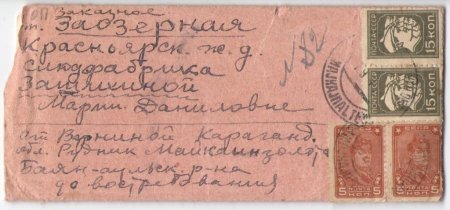 Заказное
ст. Заозерная
Красноярск. ж. д.
слюдфабрика
Запяхиной
Марии Даниловне
№ 82
от Верниной Караганд.
обл. Рудник Майкаинзолото
Баян-аульск. р-на
до востребования
ПОЧТА СССР
15 КОП.
ПОЧТА СССР
15 КОП.
5 5
5 5